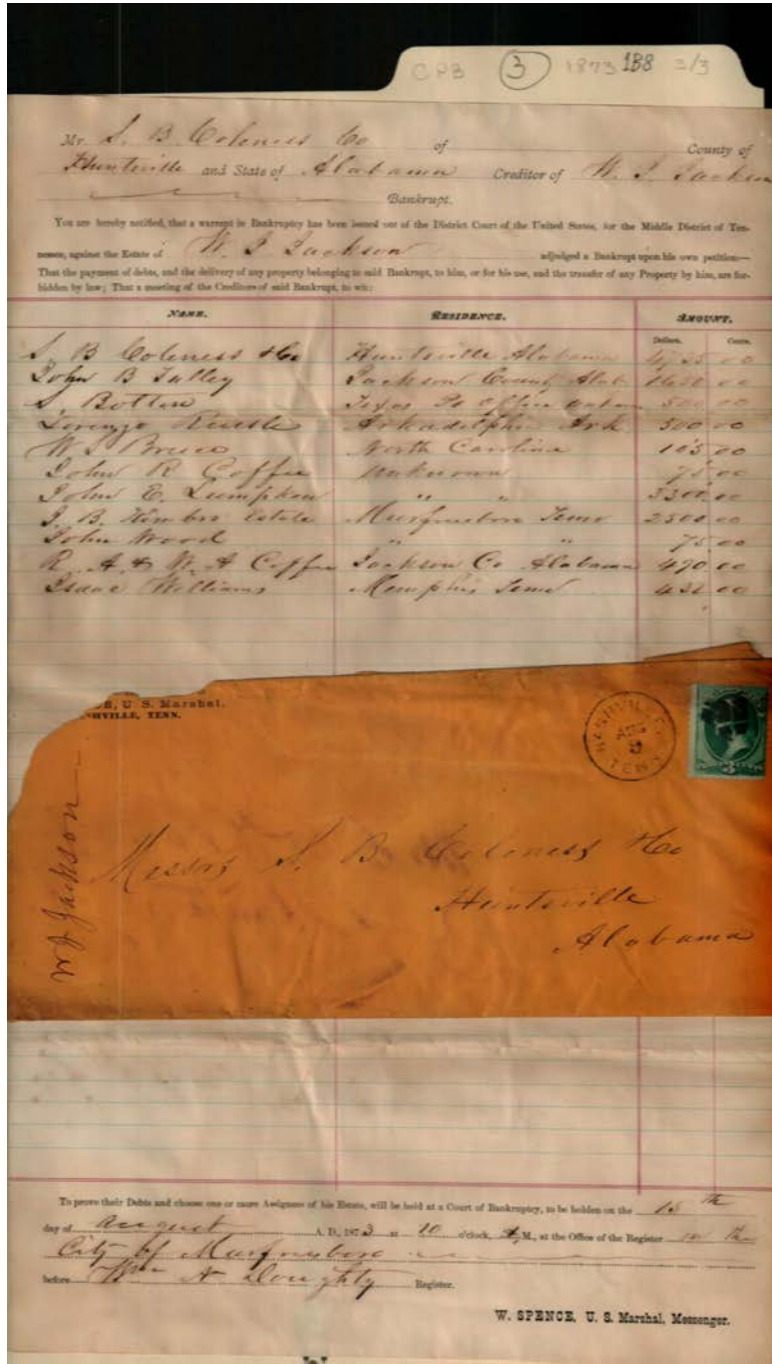 CPB 3 1873 1B8 3/3
Mr. S. B. Coleness Co of County of
Huntsville and State of Alabama Creditor of W. J. Jackson
Bankrupt.
You are hereby notified, that a warrant in Bankruptcy has been issued out of the District Court of the United States, for the Middle District of Ten-
nessee, against the Estate of W. J. Jackson adjudged a Bankrupt upon his own petition—
That the payment of debts, and the delivery of any property belonging to said Bankrupt, to him, or for his use, and the transfer of any Property by him, are for-
bidden by law; That a meeting of the Creditors of said Bankrupt, to wit:
NAME. RESIDENCE. AMOUNT.
Dollars. Cents.
S. B Coleness & Co Huntsville Alabama 00
John B Talley Jackson County Alab 00
S. Botten Texas Po Office 500 00
Lorenzo Arkadelphia Ark 500 00
W. S Bruce North Carolina 105 00
John R Coffee unknown 75 00
John E. Lumpkin " " 3300 00
J. B. Kimbro Estate Murfreesboro Tenn 2500 00
John Wood " " 75 00
R. A. & W. A Coffee Jackson Co Alabama 470 00
Isaac Williams Memphis Tenn 00
CE, U S. Marshal.
SHVILLE, TENN.
NASHVILLE
AUG
5
TENN
3
W J Jackson
Messrs S. B Coleness & Co
Huntsville
Alabama
To prove their Debts and choose one or more Assignees of his Estate, will be held at a Court of Bankruptcy, to be holden on the 15th
day of August A. D., 1873 at 10 o'clock, A, M., at the Office of the Register in the
City of Murfreesboro
before Wm N Doughty Register.
W. SPENCE, U. S. Marshal, Messenger.